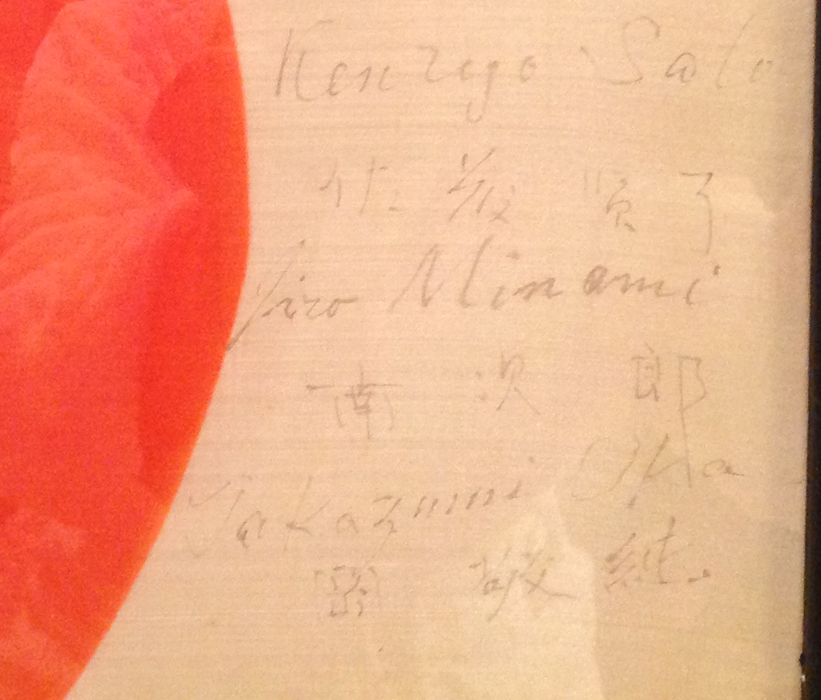 Kenryo Sato
佐藤賢了
Jiro Minami
南次郎
Takazumi Oka
岡敬純